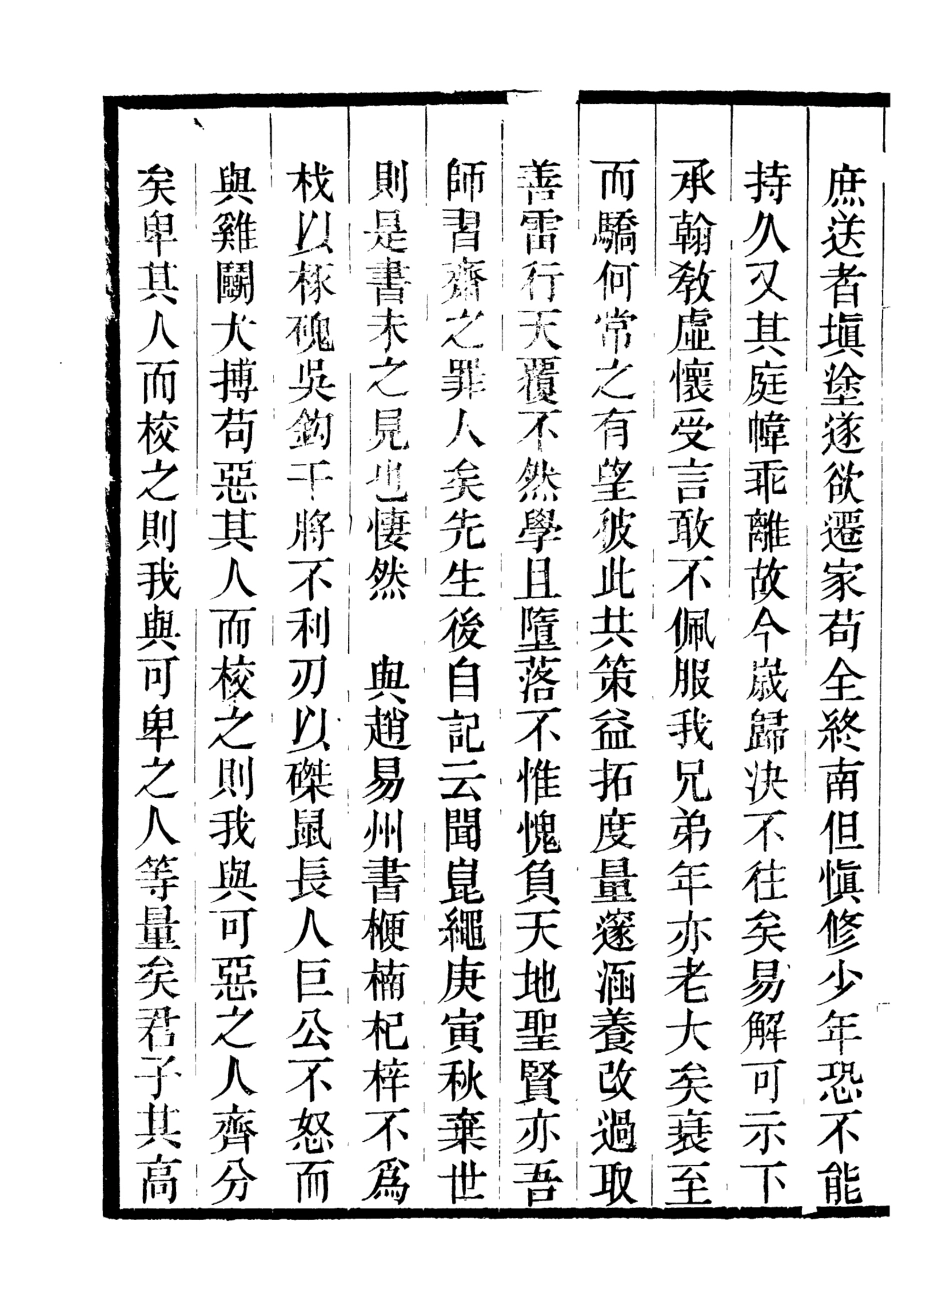 庶送者塡塗遂欲遷家苟全終南但愼修少年恐不能
持久又其庭幃乖離故今歲歸決不往矣易解可示下
承翰敎虛懷受言敢不佩服我兄弟年亦老大矣衰至
而驕何常之有望彼此共策益拓度量邃涵養改過取
善雷行天覆不然學且墮落不惟愧負天地聖賢亦吾
師習齋之罪人矣先生後自記云聞崑繩庚寅秋棄世
則是書未之見也悽然　與趙易州書楩楠杞梓不爲
杙以椓磈吳鈎干將不利刃以磔鼠長人巨公不怒而
與雞鬭犬搏苟惡其人而校之則我與可惡之人齊分
矣卑其人而校之則我與可卑之人等量矣君子其高